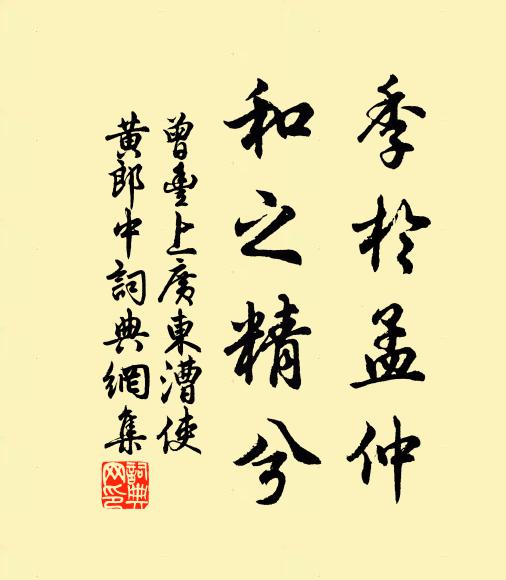 季於孟仲
和之精兮
曾豊上廣東漕使
黃郎中詞典網集
詞典
网印